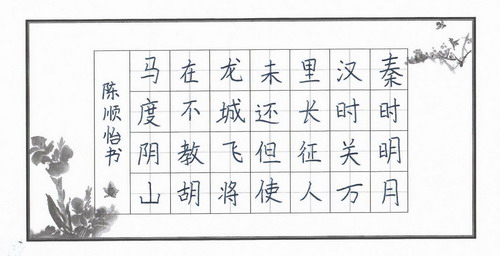 秦时明月
汉时关万
里长征人
未还但使
龙城飞将
在不教胡
马度阴山
陈顺怡书